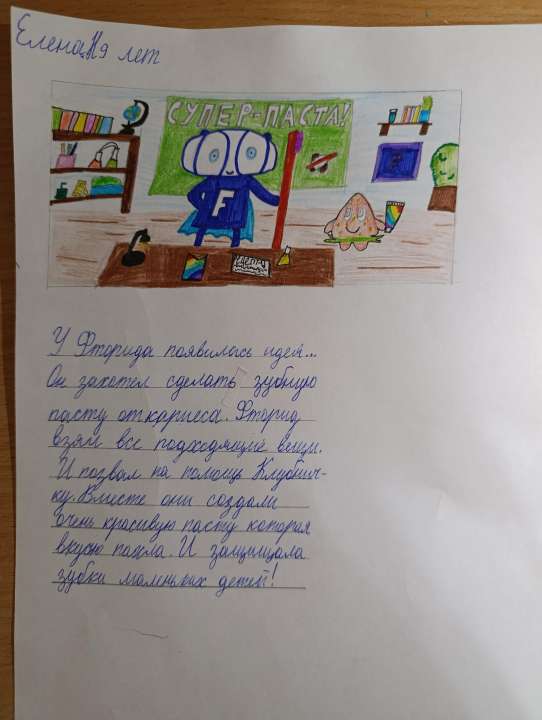 Елена, 9 лет
СУПЕР-ПАСТА!
F
У Фторида появилась идея...
Он захотел сделать зубную
пасту от кариеса. Фторид
взял все подходящие вещи.
И позвал на помощь Клубнич-
ку. Вместе они создали
очень красивую пасту которая
вкусно пахла. И защищала
зубки маленьких детей!